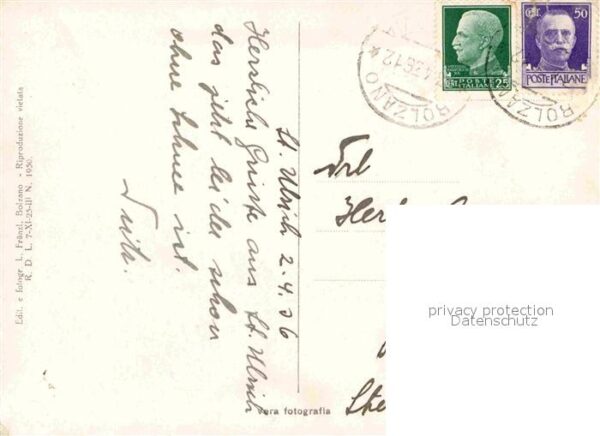 St. Ulrich 2.4.36
Herzliche Grüsse aus St. Ulrich
das jetzt leider schon
ohne Schnee ist.
Frl
Vera fotografia
Edit. e fotogr. L. Fränzl, Bolzano - Riproduzione vietata
R. D. L. 7-XI-25-III N. 1950.
POSTE
ITALIANE
25
CENT. 50
POSTE ITALIANE
BOLZANO
BOLZANO
privacy protection
Datenschutz